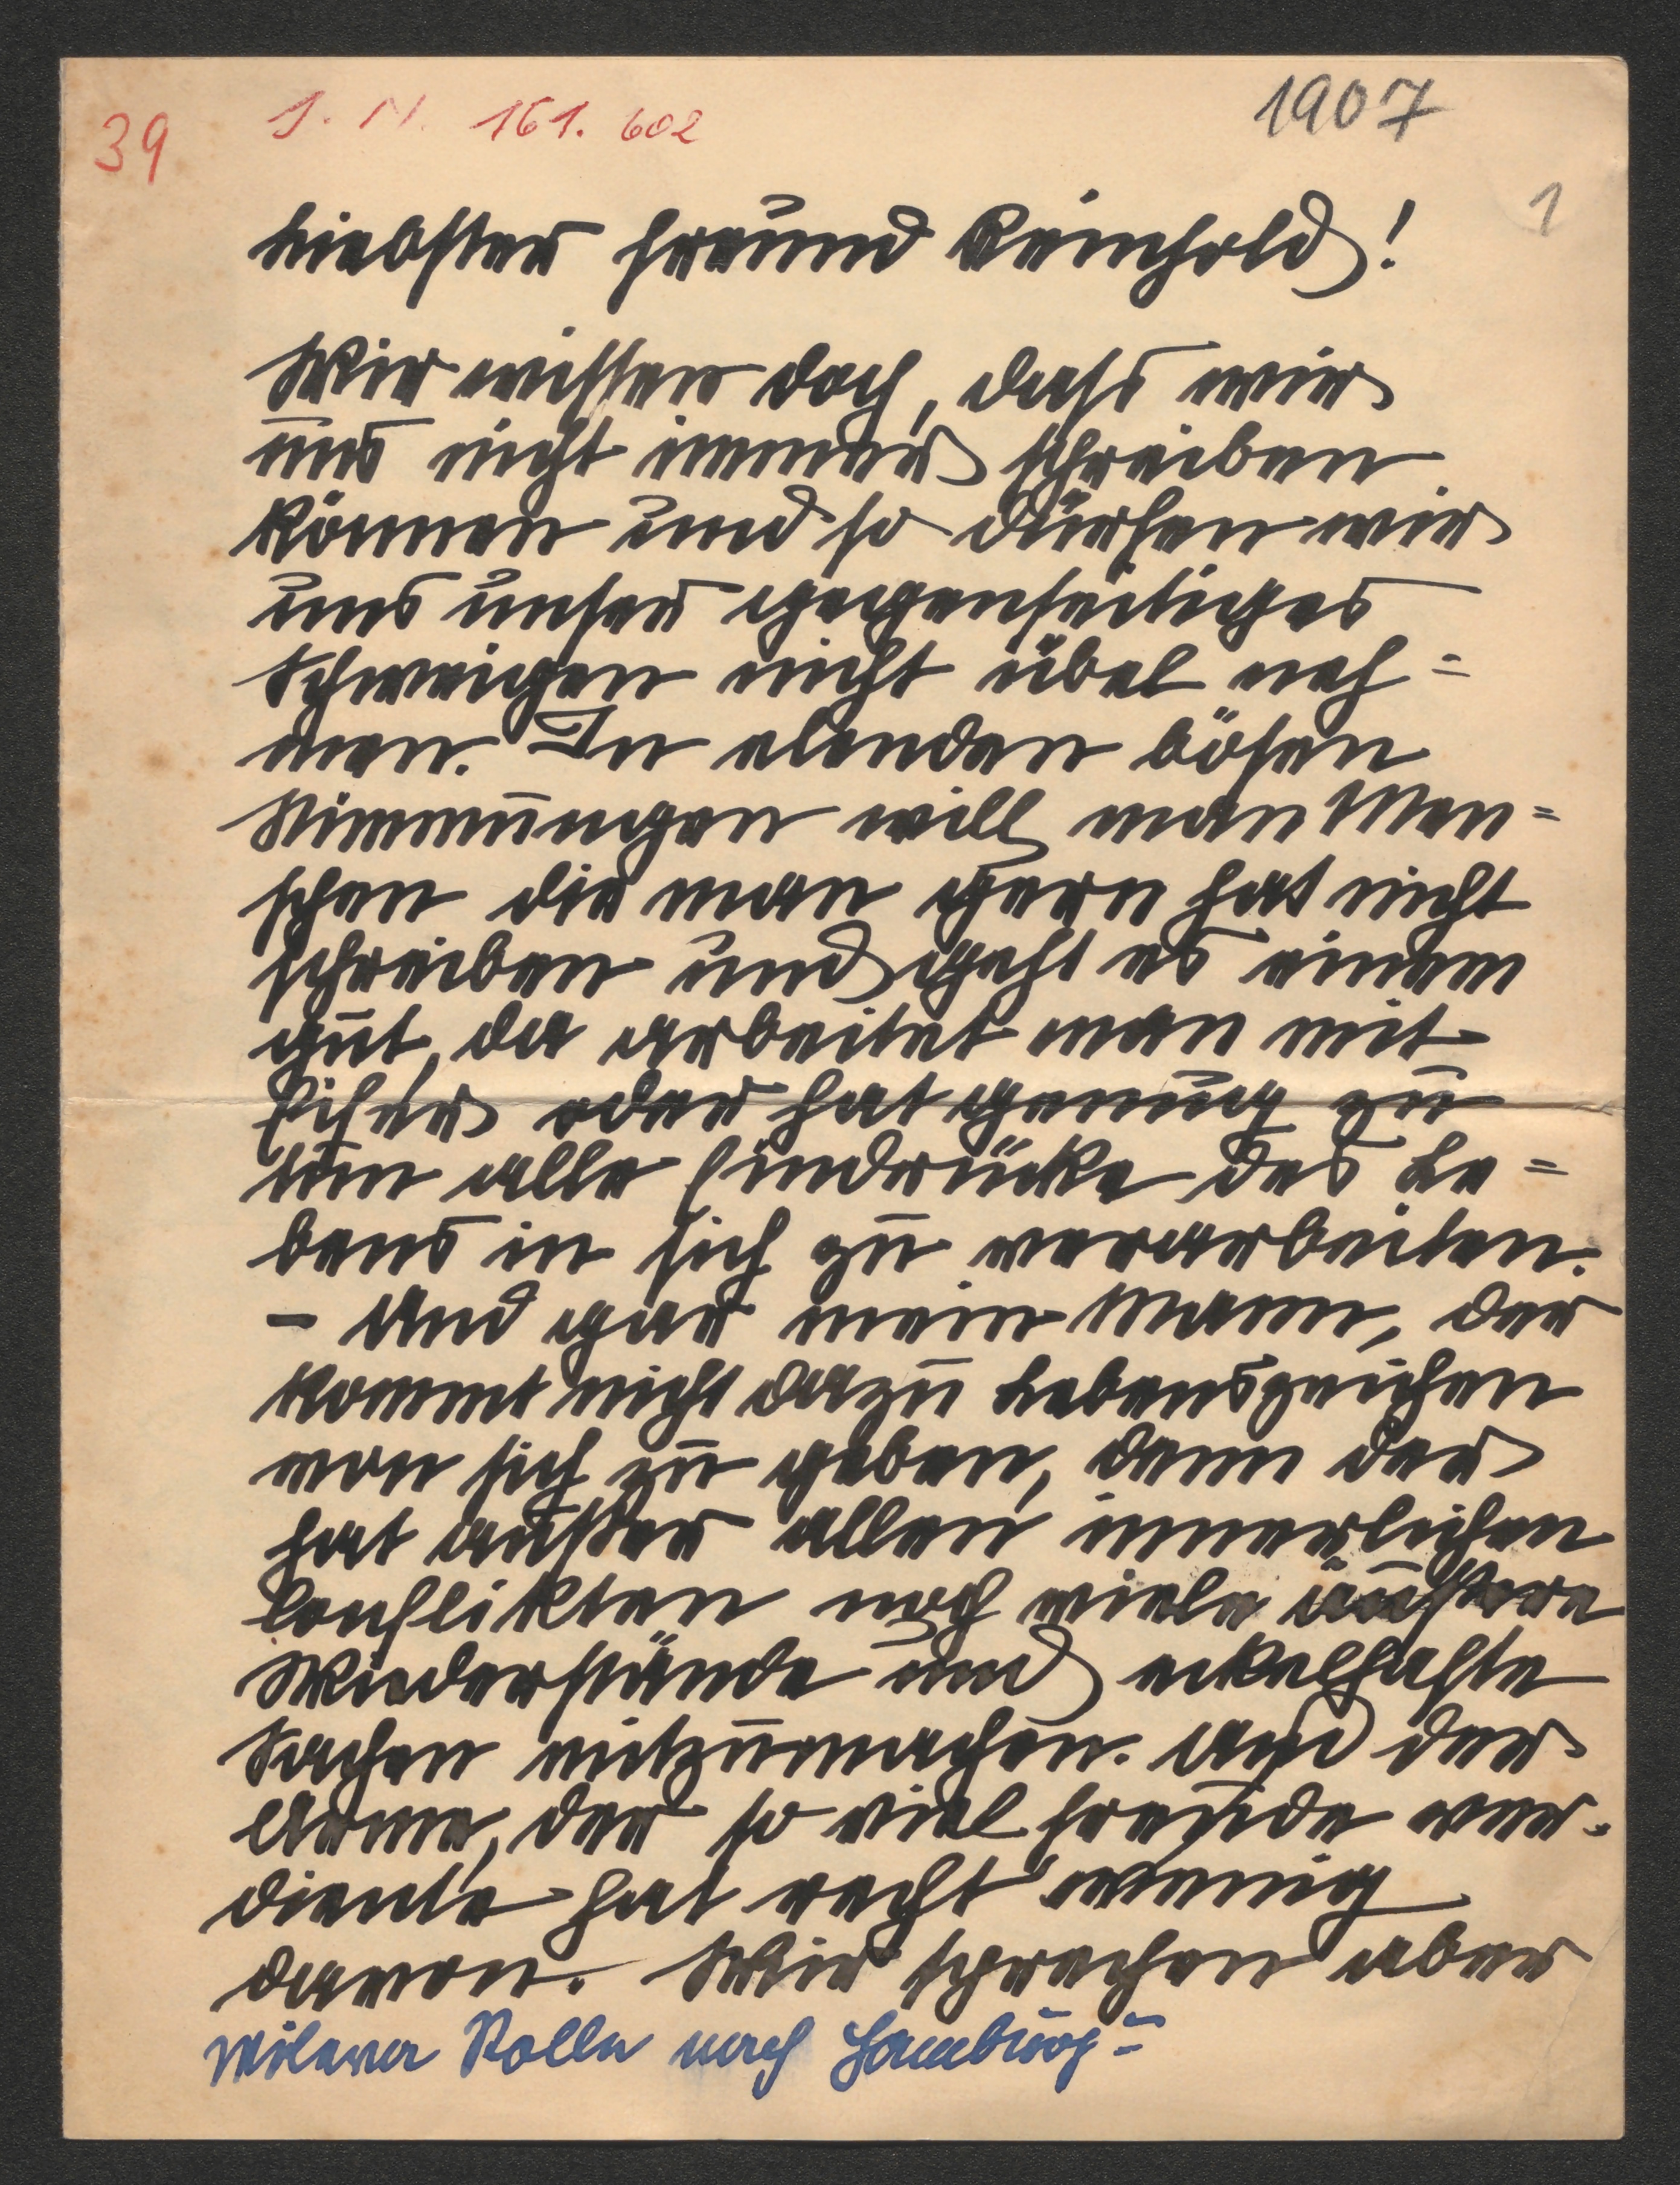 39
J. N. 161.602
1907
1
Liebster Freund Reinhold!
Wir wissen doch, dass wir
uns nicht immer schreiben
können und so dürfen wir
uns unser gegenseitiges
Schweigen nicht übel neh=
men. In elenden bösen
Stimmungen will man Men=
schen die man gern hat nicht
schreiben und geht es einem
gut, da arbeitet man mit
Eifer oder hat genug zu
tun alle Eindrücke des Le=
bens in sich zu verarbeiten.
– Und gar mein Mann, der
kommt nicht dazu Lebenszeichen
von sich zu geben, denn der
hat ausser allen innerlichen
Conflikten noch viele äussere
Wiederstände und eckelhafte
Sachen mitzumachen. Und der
Arme, der so viel Freude ver-
diente hat recht wenig
davon. Wir sprachen aber
Rolle nach Hamburg